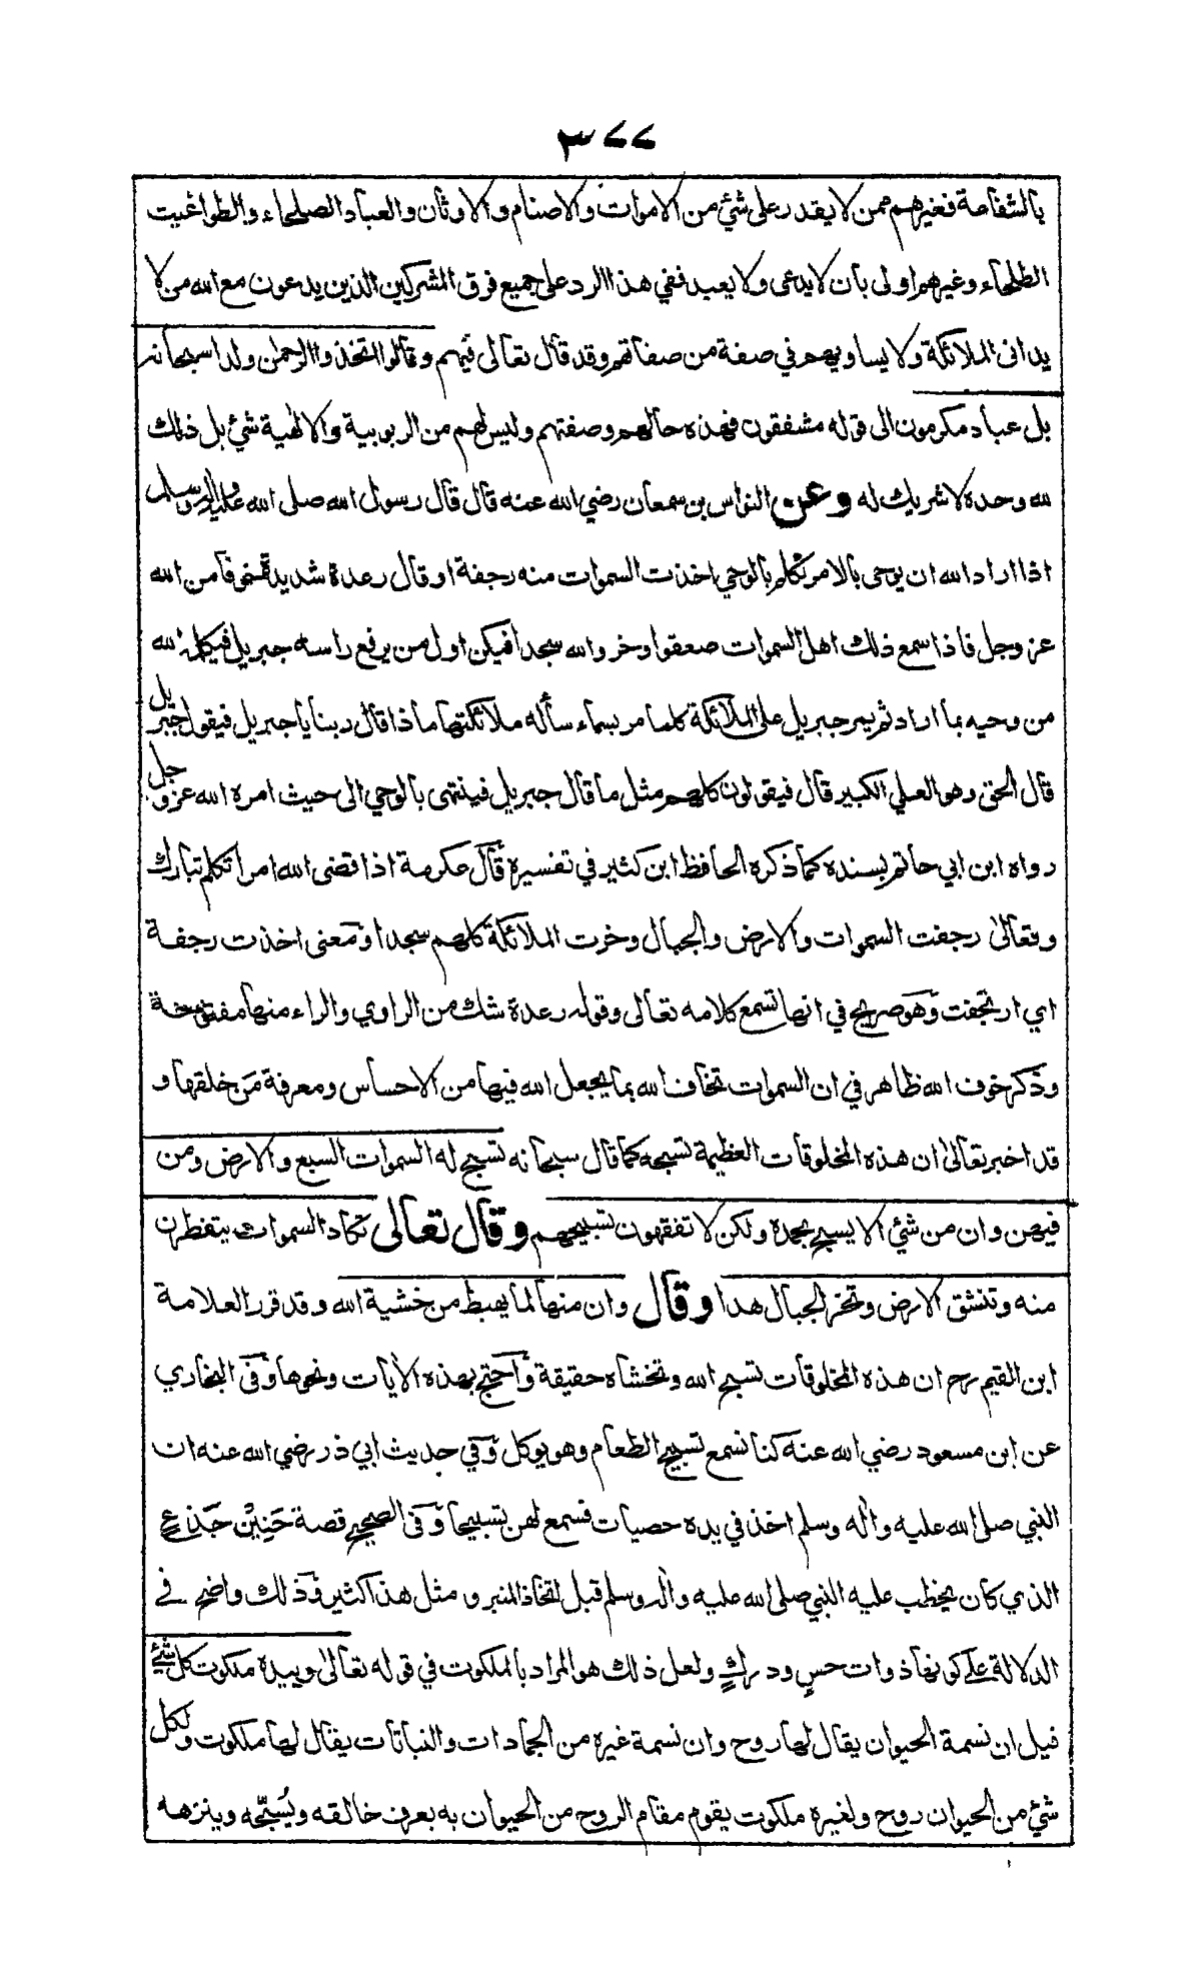 ٣٧٧
بالشفاعة فغيرهم ممن لا يقدر على شئ من الاموات والاصنام والاوثان والعباد الصلحاء والطواغيت
الطلحاء وغيرهم اولى بان لا يدعى ولا يعبد ففي هذا الرد على جميع فرق المشركين الذين يدعون مع الله من لا
يدانى الملائكة ولا يساويهم في صفة من صفاتهم وقد قال تعالى فيهم وقالوا اتخذ الرحمن ولدا سبحانه
بل عباد مكرمون الى قوله مشفقون فهذه حالهم وصفتهم وليس لهم من الربوبية والالهية شئ بل ذلك
لله وحده لا شريك له وعن النواس بن سمعان رضي الله عنه قال قال رسول الله صلى الله عليه واله وسلم
اذا اراد الله ان يوحى بالامر تكلم بالوحي اخذت السموات منه رجفة او قال رعدة شديدة خوفا من الله
عز وجل فاذا سمع ذلك اهل السموات صعقوا وخروا لله سجدا فيكن اول من يرفع راسه جبريل فيكلمه الله
من وحيه بما اراد ثم يمر جبريل على الملائكة كلما مر بسماء سأله ملائكتها ماذا قال ربنا يا جبريل فيقول جبريل
قال الحق وهو العلي الكبير قال فيقولون كلهم مثل ما قال جبريل فينتهى بالوحي الى حيث امره الله عز وجل
رواه ابن ابي حاتم بسنده كما ذكره الحافظ ابن كثير في تفسيره قال عكرمة اذا قضى الله امرا تكلم تبارك
وتعالى رجفت السموات والارض والجبال وخرت الملائكة كلهم سجدا ومعنى اخذت رجفة
اي ارتجفت وهو صريح في انها تسمع كلامه تعالى وقوله رعدة شك من الراوي والراء منها مفتوحة
وذكر خوف الله ظاهر في ان السموات تخاف الله بما يجعل الله فيها من الاحساس ومعرفة من خلقها و
قد اخبر تعالى ان هذه المخلوقات العظيمة تسبحه كما قال سبحانه تسبح له السموات السبع والارض ومن
فيهن وان من شئ الا يسبح بحمده ولكن لا تفقهون تسبيحهم وقال تعالى تكاد السموات يتفطرن
منه وتنشق الارض وتخر الجبال هدا وقال وان منها لما يهبط من خشية الله وقد قرر العلامة
ابن القيم رح ان هذه المخلوقات تسبح الله وتخشاه حقيقة واحتج بهذه الأيات ونحوها وفى البخاري
عن ابن مسعود رضي الله عنه كنا نسمع تسبيح الطعام وهو يوكل وفي حديث ابي ذر رضي الله عنه ان
النبي صلى الله عليه واله وسلم اخذ في يده حصيات فسمع لهن تسبيحا وفى الصحيح قصة حَنِيْن جَذعٍ
الذي كان يخطب عليه النبي صلى الله عليه واله وسلم قبل اتخاذ المنبر ومثل هذا كثير وذلك واضح في
الدلالة على كونها ذوات حس ودرك ولعل ذلك هو المراد بالملكوت في قوله تعالى وبيده ملكوت كل شئ
قيل ان نسمة الحيوان يقال لها روح وان نسمة غيره من الجمادات والنباتات يقال لها ملكوت ولكل
شئ من الحيوان روح ولغيره ملكوت يقوم مقام الروح من الحيوان به يعرف خالقه ويُسبّحه وينزهه